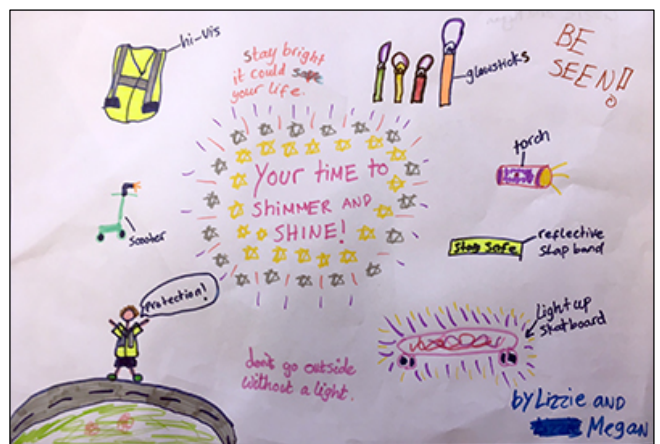 hi-vis
stay bright
it could save
your life.
glowsticks
BE
SEEN!
torch
YOUR TIME TO
SHIMMER AND
SHINE!
scooter
Stay Safe
reflective
slap band
Protection!
Light up
skatboard
don't go outside
without a light.
by Lizzie AND
Megan